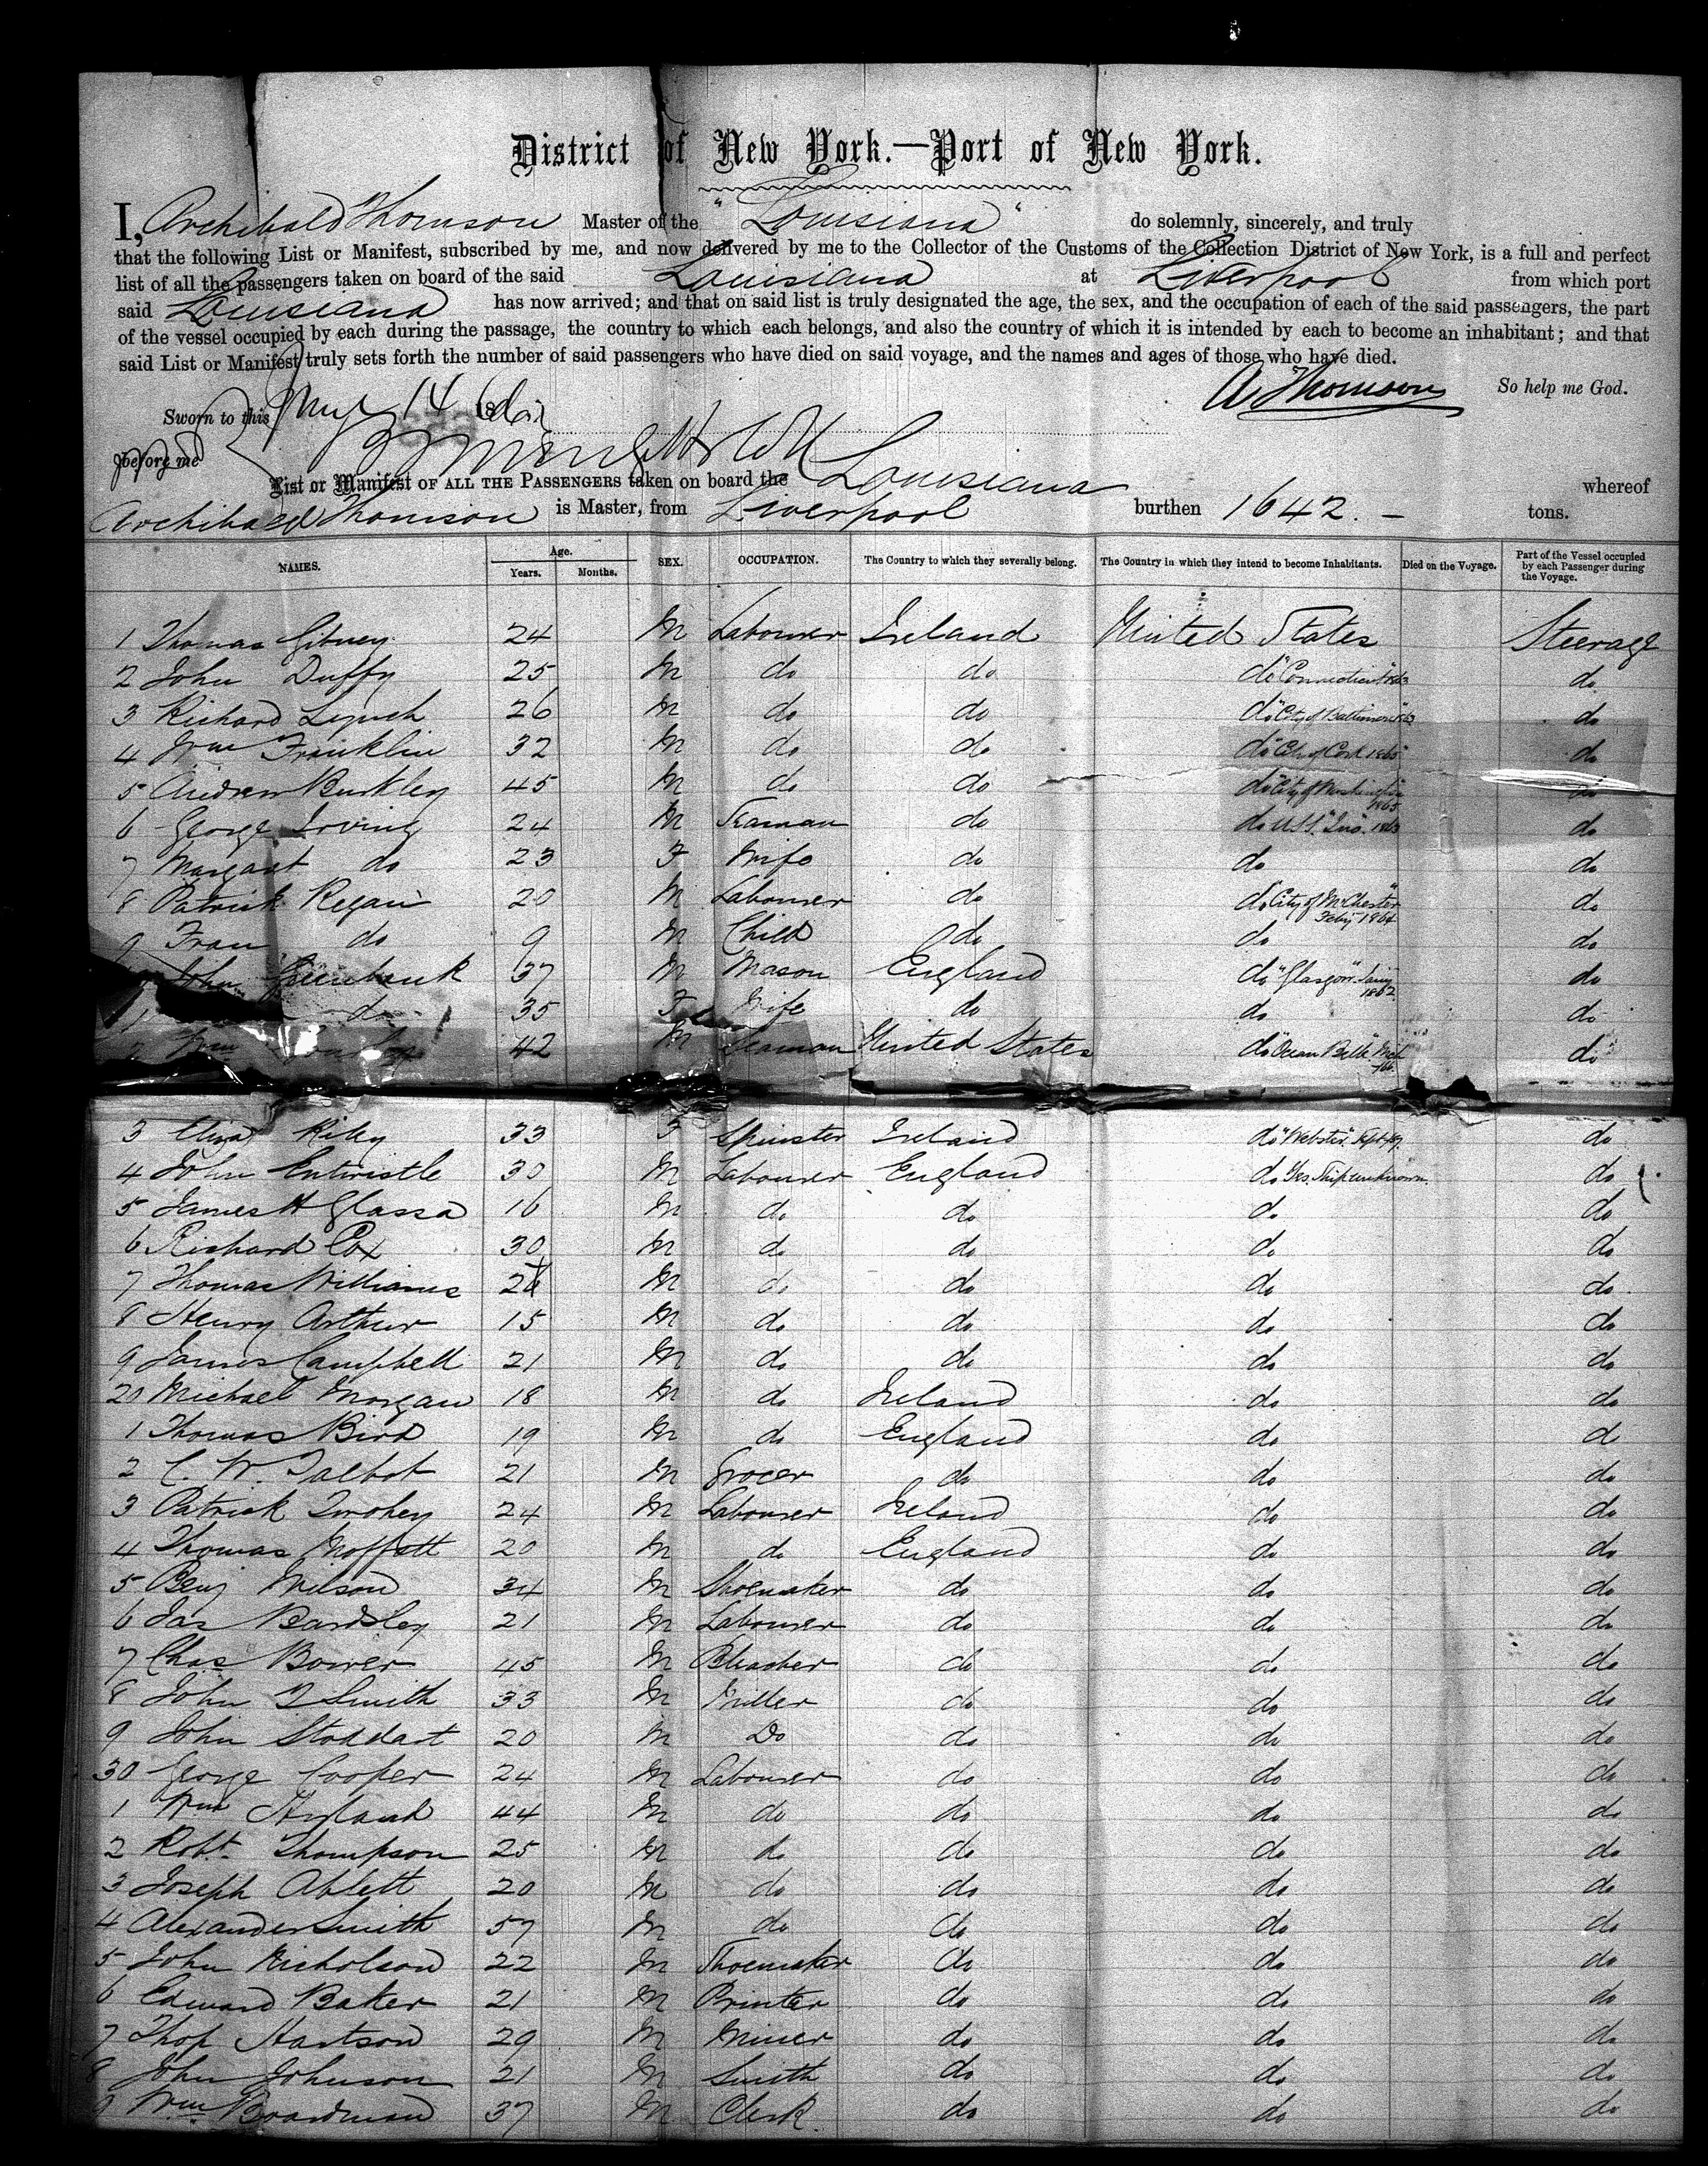 District of New York.—Port of New York.
I, Archibald Thomson Master of the "Louisiana" do solemnly, sincerely, and truly
that the following List or Manifest, subscribed by me, and now delivered by me to the Collector of the Customs of the Collection District of New York, is a full and perfect
list of all the passengers taken on board of the said Louisiana at Liverpool from which port
said Louisiana has now arrived; and that on said list is truly designated the age, the sex, and the occupation of each of the said passengers, the part
of the vessel occupied by each during the passage, the country to which each belongs, and also the country of which it is intended by each to become an inhabitant; and that
said List or Manifest truly sets forth the number of said passengers who have died on said voyage, and the names and ages of those who have died.
A Thomson So help me God.
Sworn to this 14 186
before me
List or Manifest OF ALL THE PASSENGERS taken on board the Louisiana whereof
Archibald Thomson is Master, from Liverpool burthen 1642. — tons.
NAMES. Age. Years. Months. SEX. OCCUPATION. The Country to which they severally belong. The Country in which they intend to become Inhabitants. Died on the Voyage. Part of the Vessel occupied by each Passenger during the Voyage.
1 Thomas Gibney 24 M Labourer Ireland United States Steerage
2 John Duffy 25 M do do do "Connecticut" 1863 do
3 Richard Lynch 26 M do do do "City of Baltimore" 1863 do
4 Wm Franklin 32 M do do do "City of Cork 1865" do
5 Andrew Burkley 45 M do do do "City of Washington" 1865 do
6 George Loving 24 M Seaman do do U.S.S. 1863 do
7 Margaret do 23 F Wife do do do
8 Patrick Regan 20 M Labourer do do "City of McChester" Feby 1864 do
9 Fran do 9 M Child do do do
John Greenbank 37 M Mason England do "Glasgow" Jany 1862 do
1 do 35 F Wife do do do
2 Wm 42 M Seaman United States do "Ocean Belle" Mch do
3 Eliza Riley 33 F Spinster Ireland do "Webster" Sept do
4 John Entwistle 30 M Labourer England do Yes. Ship unknown. do
5 James H Glassa 16 M do do do do
6 Richard Cox 30 M do do do do
7 Thomas Williams M do do do do
8 Henry Arthur 15 M do do do do
9 James Campbell 21 M do do do do
20 Michael Morgan 18 M do Ireland do do
1 Thomas Bird 19 M do England do do
2 C. W. Talbot 21 M Grocer do do do
3 Patrick Twohey 24 M Labourer Ireland do do
4 Thomas Moffatt 20 M do England do do
5 Benj Wilson 34 M Shoemaker do do do
6 Jas Bardsley 21 M Labourer do do do
7 Chas Bower 45 M Bleacher do do do
8 John T Smith 33 M Miller do do do
9 John Stoddart 20 M Do do do do
30 George Cooper 24 M Labourer do do do
1 Wm 44 M do do do do
2 Robt Thompson 25 M do do do do
3 Joseph Ablett 20 M do do do do
4 Alexander Smith 57 M do do do do
5 John Nicholson 22 M Shoemaker do do do
6 Edward Baker 21 M Printer do do do
7 Thos Hartson 29 M Miner do do do
8 John Johnson 21 M Smith do do do
9 Wm Boardman 37 M Clerk do do do